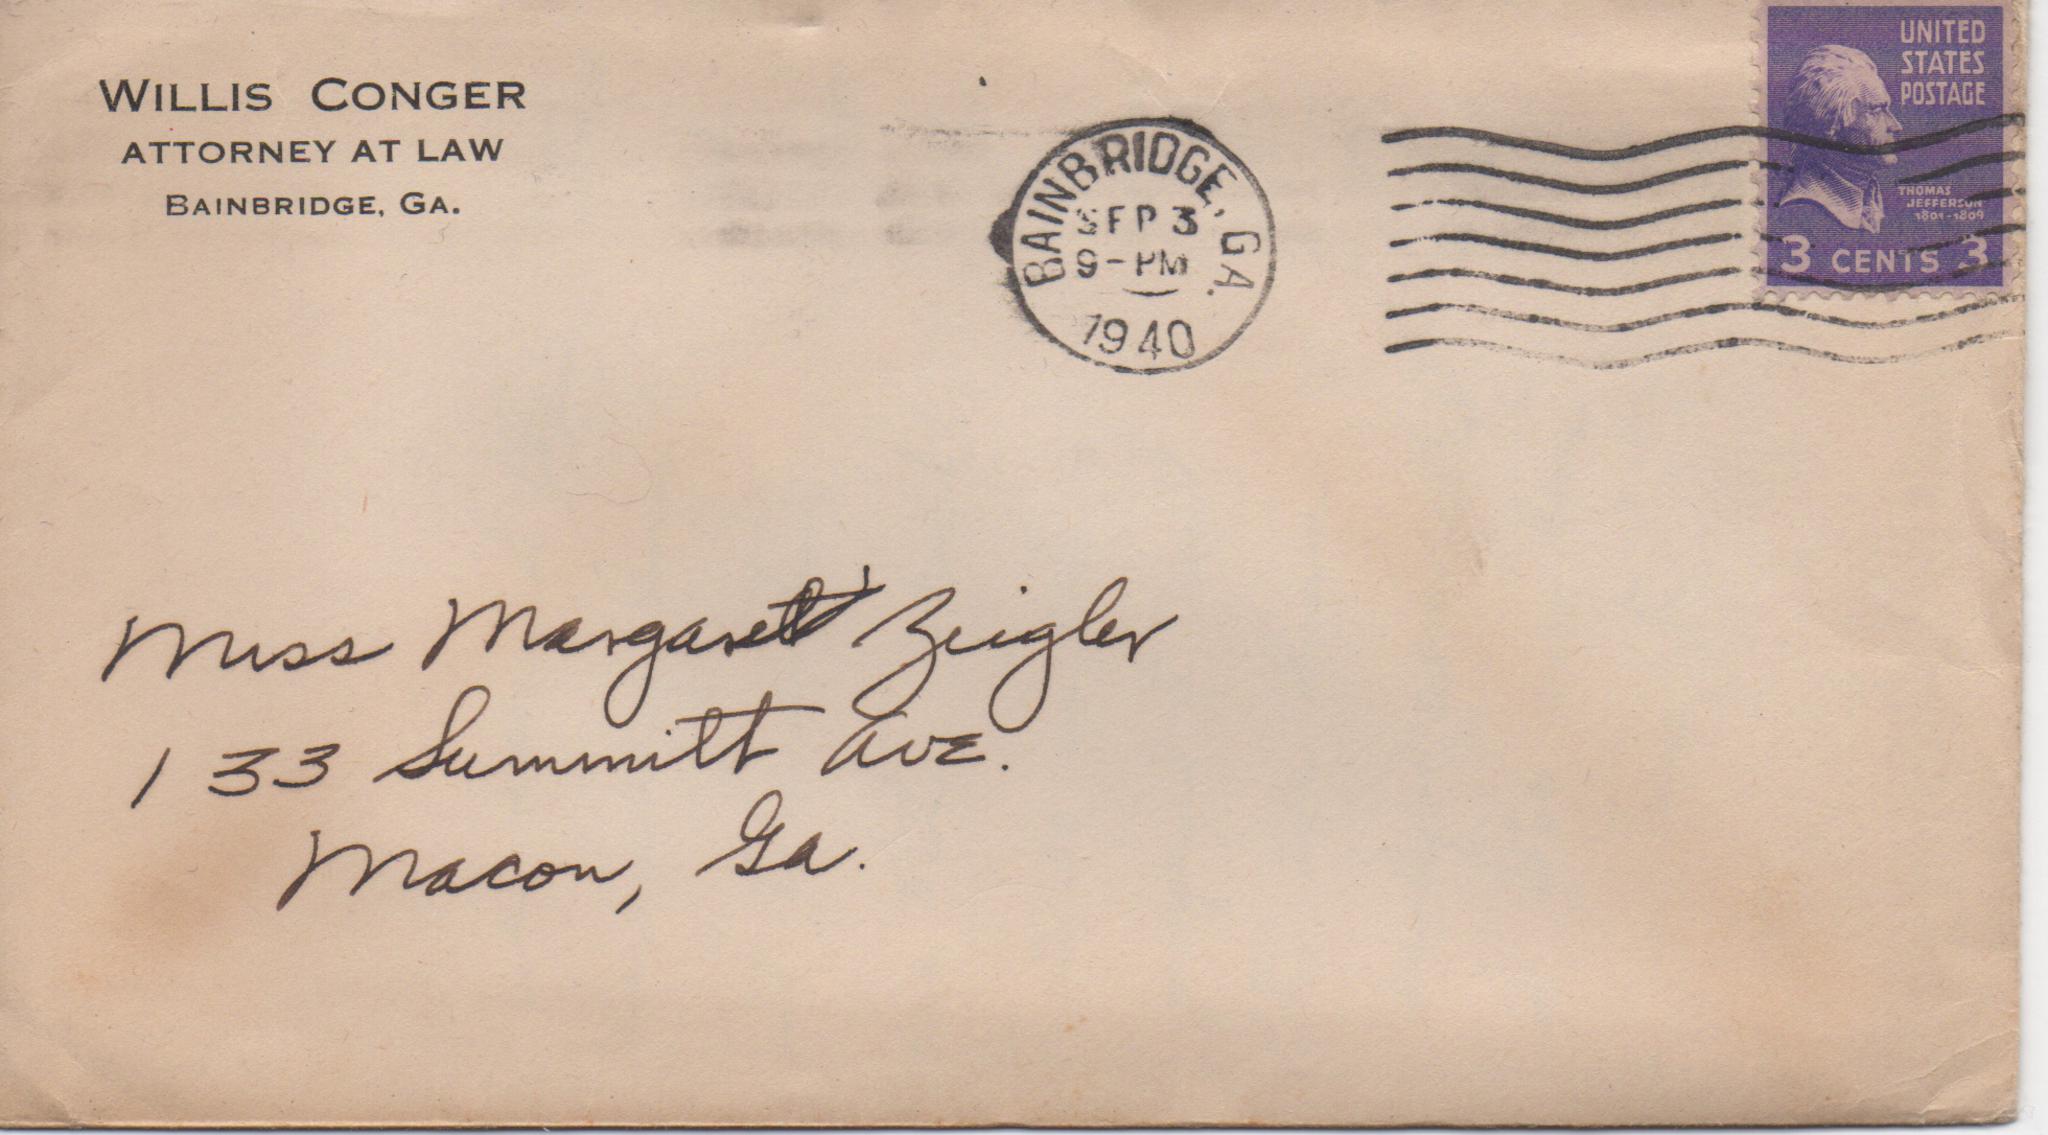 WILLIS CONGER
ATTORNEY AT LAW
BAINBRIDGE, GA.
BAINBRIDGE, GA.
SEP 3
9-PM
1940
UNITED
STATES
POSTAGE
THOMAS
JEFFERSON
1801-1809
3 CENTS 3
Miss Margaret Zeigler
133 Summitt Ave.
Macon, Ga.